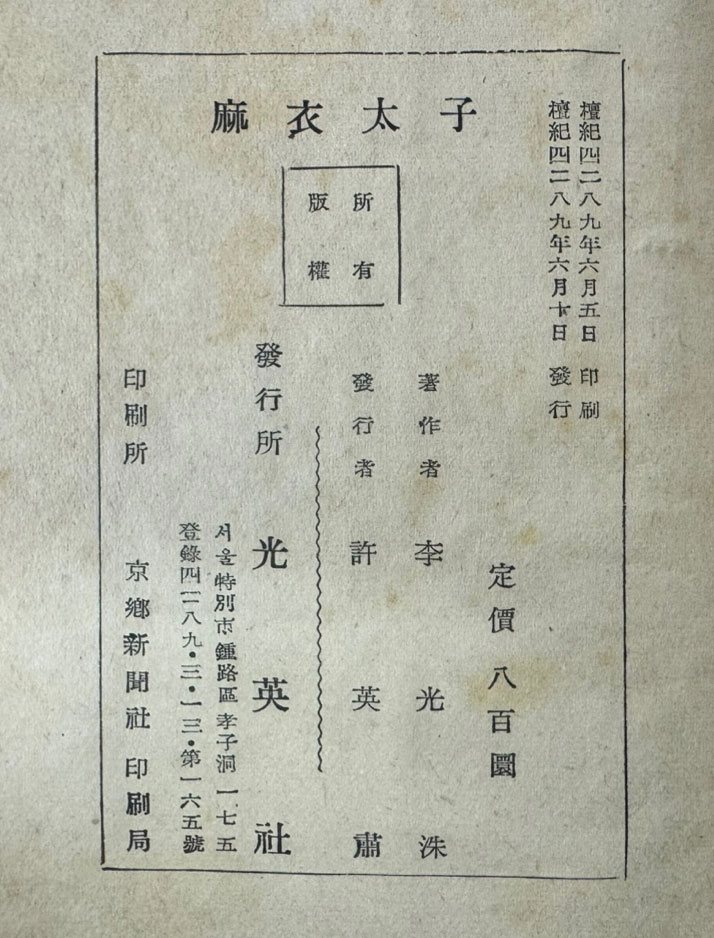 麻衣太子
版權
所有
檀紀四二八九年六月五日 印刷
檀紀四二八九年六月十日 發行
定價 八百圜
著作者 李光洙
發行者 許英肅
發行所 光英社
서울特別市鍾路區孝子洞一七五
登錄四二八九·三·一三·第一六五號
印刷所 京鄕新聞社 印刷局